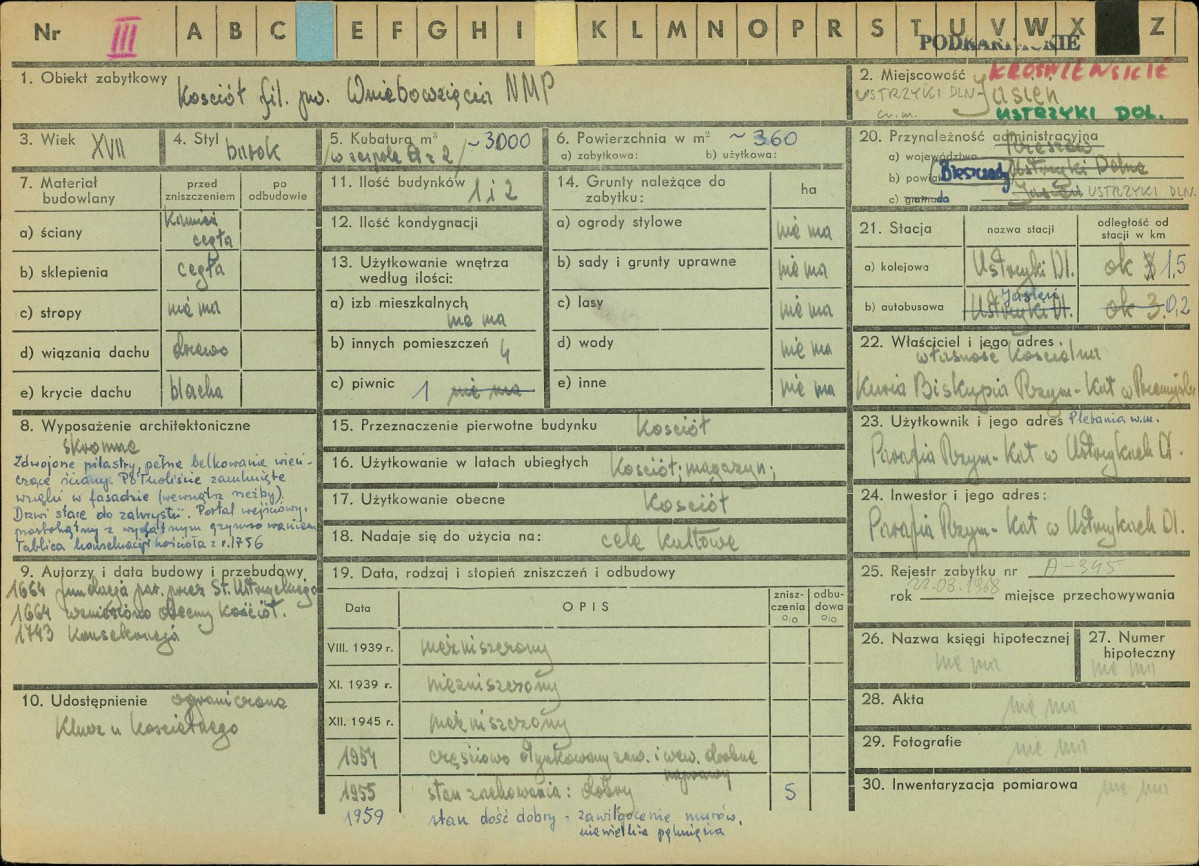 Nr III A B C E F G H I K L M N O P R S T U V W X Z
PODKARPACKIE
1. Obiekt zabytkowy Kościół fil. pw. Wniebowzięcia NMP
2. Miejscowość KROŚNIEŃSKIE
USTRZYKI DLN. Jasień
USTRZYKI DOL.
3. Wiek XVII
4. Styl barok
5. Kubatura m³ ~3000
w zespole Ð 1 i 2
6. Powierzchnia w m² ~360
a) zabytkowa: b) użytkowa:
20. Przynależność administracyjna
a) województwo Rzeszów
b) powiat Bieszczady Ustrzyki Dolne
c) gromada Jasień USTRZYKI DLN.
7. Materiał budowlany
przed zniszczeniem
po odbudowie
a) ściany Kamień cegła
b) sklepienia cegła
c) stropy nie ma
d) wiązania dachu drzewo
e) krycie dachu blacha
11. Ilość budynków 1 i 2
12. Ilość kondygnacji
13. Użytkowanie wnętrza według ilości:
a) izb mieszkalnych nie ma
b) innych pomieszczeń 4
c) piwnic 1 nie ma
14. Grunty należące do zabytku:
ha
a) ogrody stylowe nie ma
b) sady i grunty uprawne nie ma
c) lasy nie ma
d) wody nie ma
e) inne nie ma
21. Stacja
nazwa stacji
odległość od stacji w km
a) kolejowa Ustrzyki Dl. ok 1,5
b) autobusowa Jasień Ustrzyki Dl. ok 3. 0,2
22. Właściciel i jego adres
własność Kościelna
Kuria Biskupia Rzym-Kat w Przemyślu
8. Wyposażenie architektoniczne
skromne
Zdwojone pilastry, pełne belkowanie wień-
czące ściany. Półkoliście zamknięte
wnęki w fasadzie (wewnątrz rzeźby).
Drzwi stare do zakrystii. Portal wejściowy,
prostokątny z wydatnym gzymsowaniem
Tablica konsekracji kościoła z r. 1756
15. Przeznaczenie pierwotne budynku Kościół
16. Użytkowanie w latach ubiegłych Kościół; magazyn;
17. Użytkowanie obecne Kościół
18. Nadaje się do użycia na: cele kultowe
23. Użytkownik i jego adres Plebania w.m.
Parafia Rzym-Kat w Ustrzykach Dl.
24. Inwestor i jego adres:
Parafia Rzym-Kat w Ustrzykach Dl.
9. Autorzy i data budowy i przebudowy
1664 fundacja par. przez St. Ustrzyckiego
1664 wzniesiono obecny Kościół.
1743 Konsekracja
19. Data, rodzaj i stopień zniszczeń i odbudowy
Data
OPIS
zniszczenia %
odbudowa %
VIII. 1939 r. niezniszczony
XI. 1939 r. niezniszczony
XII. 1945 r. niezniszczony
1954 częściowo otynkowany zew. i wew. drobne naprawy
1955 stan zachowania: dobry 5
1959 stan dość dobry - zawilgocenie murów,
niewielkie pęknięcia
25. Rejestr zabytku nr A-395
rok 22.03.1968 miejsce przechowywania
26. Nazwa księgi hipotecznej
nie ma
27. Numer hipoteczny
nie ma
10. Udostępnienie ograniczone
Klucz u Kościelnego
28. Akta nie ma
29. Fotografie nie ma
30. Inwentaryzacja pomiarowa nie ma